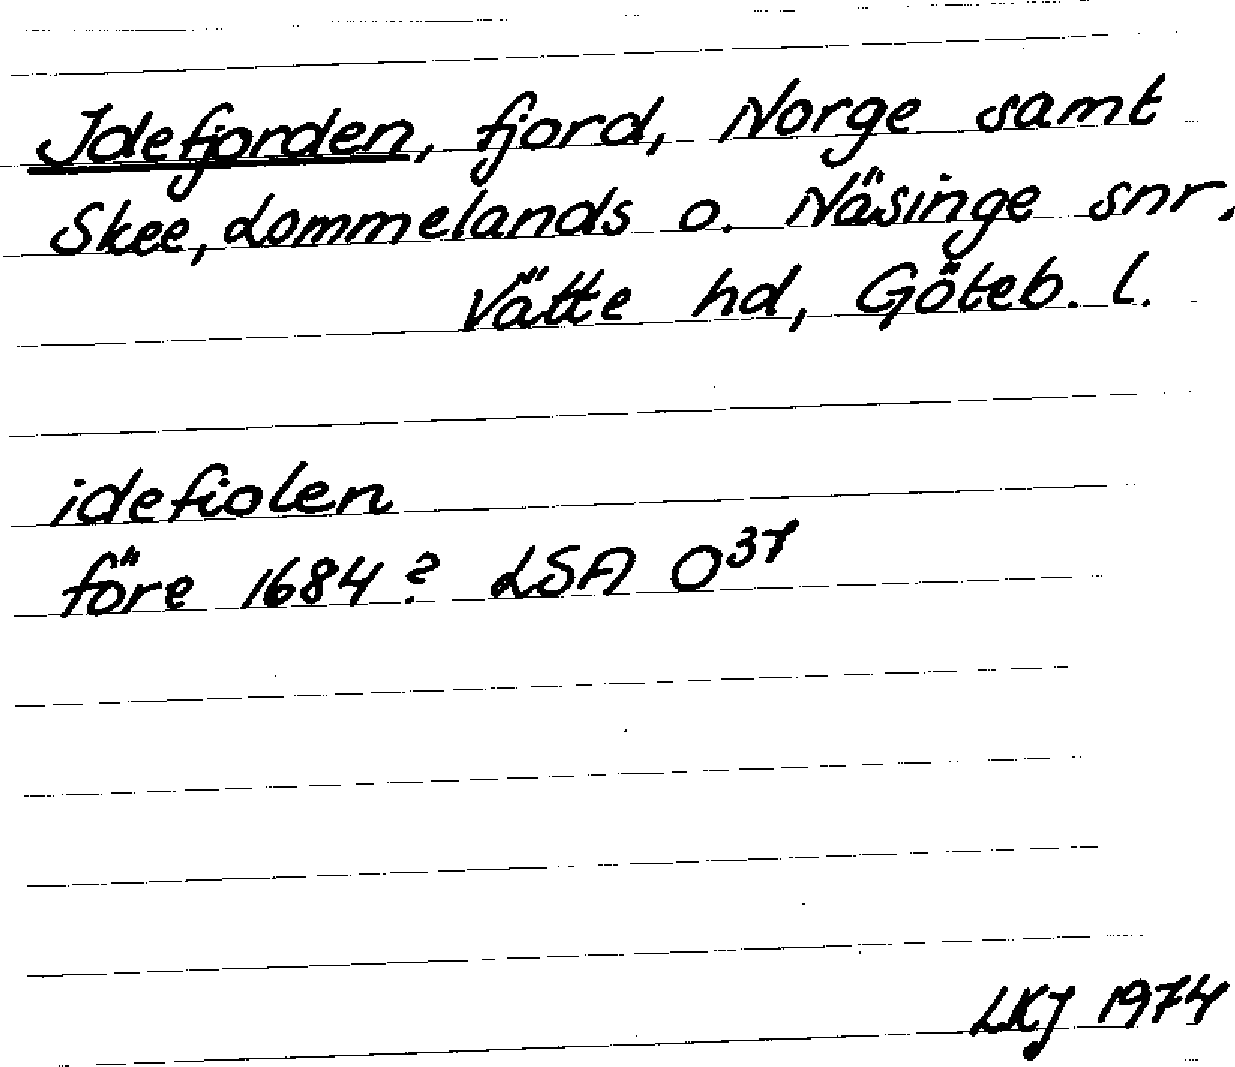 Idefjorden, fjord, Norge samt
Skee, Lommelands o. Näsinge snr.
Vätte hd, Göteb. l.
idefiolen
före 1684? LSA O³⁷
LKJ 1974